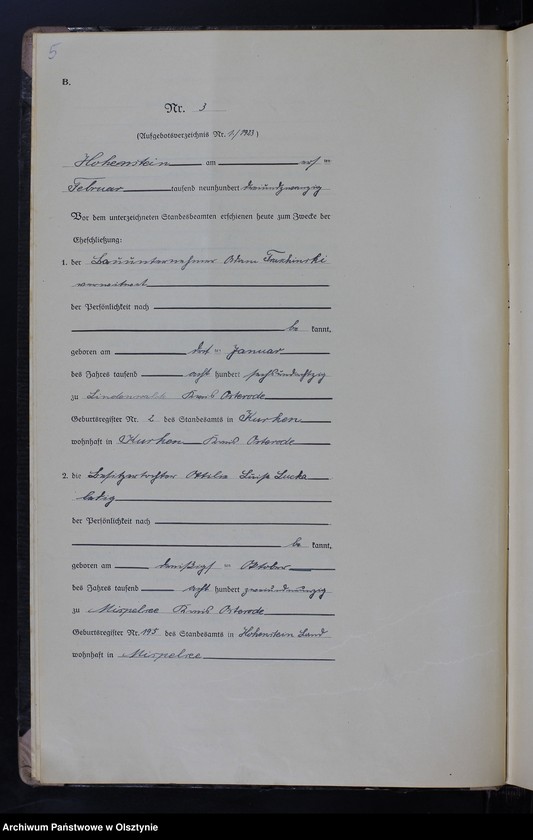 5
B.
Nr. 3
(Aufgebotsverzeichnis Nr. 1/1923)
Hohenstein am elf ten
Februar tausend neunhundert dreiundzwanzig
Vor dem unterzeichneten Standesbeamten erschienen heute zum Zwecke der
Eheschließung:
1. der Bauunternehmer Adam
verwitwet
der Persönlichkeit nach
be kannt,
geboren am Januar
des Jahres tausend acht hundert sechsundachtzig
zu Lindenwalde Kreis Osterode
Geburtsregister Nr. 2 des Standesamts in Kurken
wohnhaft in Kurken Kreis Osterode
2. die Besitzertochter Ottilie Luise Lucka
ledig
der Persönlichkeit nach
be kannt,
geboren am Oktober
des Jahres tausend acht hundert
zu Mispelsee Kreis Osterode
Geburtsregister Nr. 195 des Standesamts in Hohenstein Land
wohnhaft in Mispelsee
Archiwum Państwowe w Olsztynie